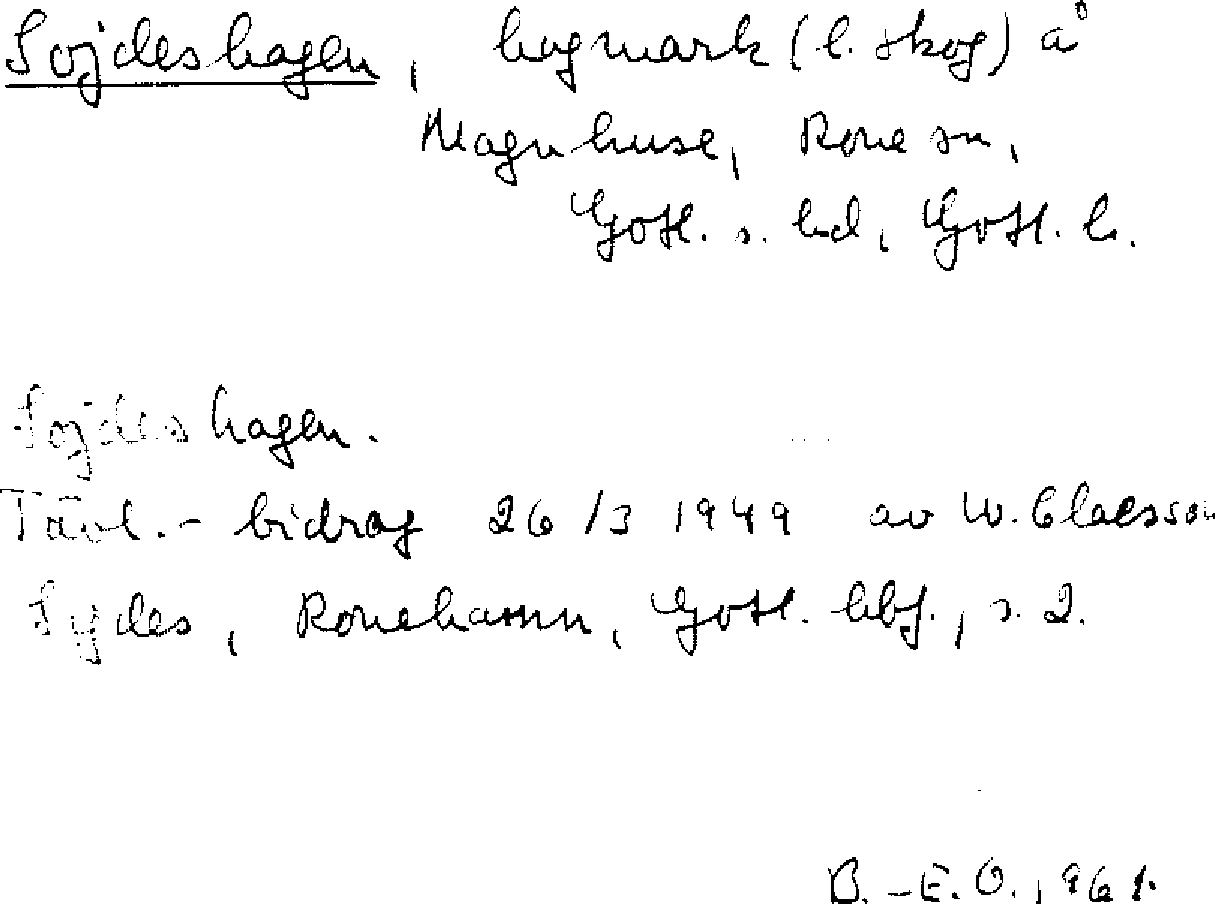 Sojdeshagen, hagmark (l. skog) å
Magnhuse, Rone sn,
Gotl. s. hd, Gotl. l.
Sojdeshagen.
Tävl.- bidrag 26/3 1949 av W. Claesson
Sydes, Ronehamn, Gotl. hbf., s. 2.
B.-E. O., 1961.